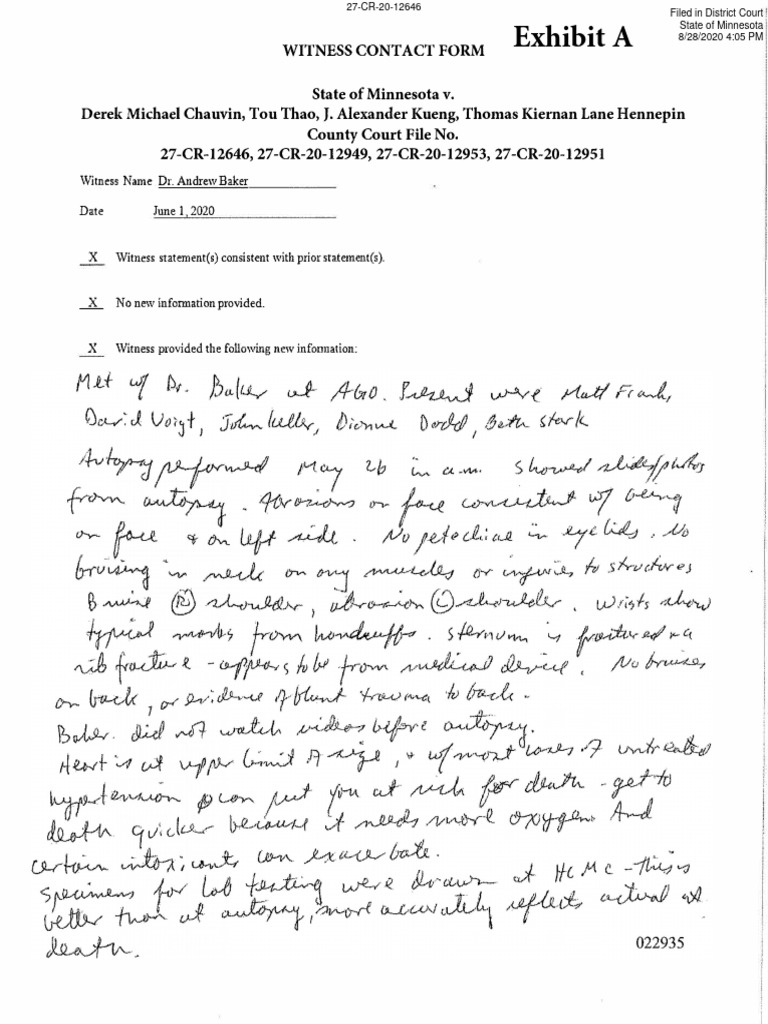 27-CR-20-12646
Filed in District Court
State of Minnesota
8/28/2020 4:05 PM
Exhibit A
WITNESS CONTACT FORM
State of Minnesota v.
Derek Michael Chauvin, Tou Thao, J. Alexander Kueng, Thomas Kiernan Lane Hennepin
County Court File No.
27-CR-12646, 27-CR-20-12949, 27-CR-20-12953, 27-CR-20-12951
Witness Name Dr. Andrew Baker
Date June 1, 2020
X Witness statement(s) consistent with prior statement(s).
X No new information provided.
X Witness provided the following new information:
Met w/ Dr. Baker at AGO. Present were Matt Frank,
David Voigt, John Keller, Dionne Dodd, Beth Stark
Autopsy performed May 26 in a.m. Showed slides/photos
from autopsy. Abrasions on face consistent w/ being
on face + on left side. No petechiae in eyelids. No
bruising in neck on any muscles or injuries to structures
Bruise (R) shoulder, abrasion (L) shoulder. Wrists show
typical marks from handcuffs. Sternum is fractured + a
rib fracture - appears to be from medical device. No bruises
on back, or evidence of blunt trauma to back.
Baker did not watch videos before autopsy.
Heart is at upper limit of size, + w/ most cases of untreated
hypertension can put you at risk for death - get to
death quicker because it needs more oxygen. And
certain intoxicants can exacerbate.
Specimens for lab testing were drawn at HCMC - This is
better than at autopsy, more accurately reflects actual at
death.
022935